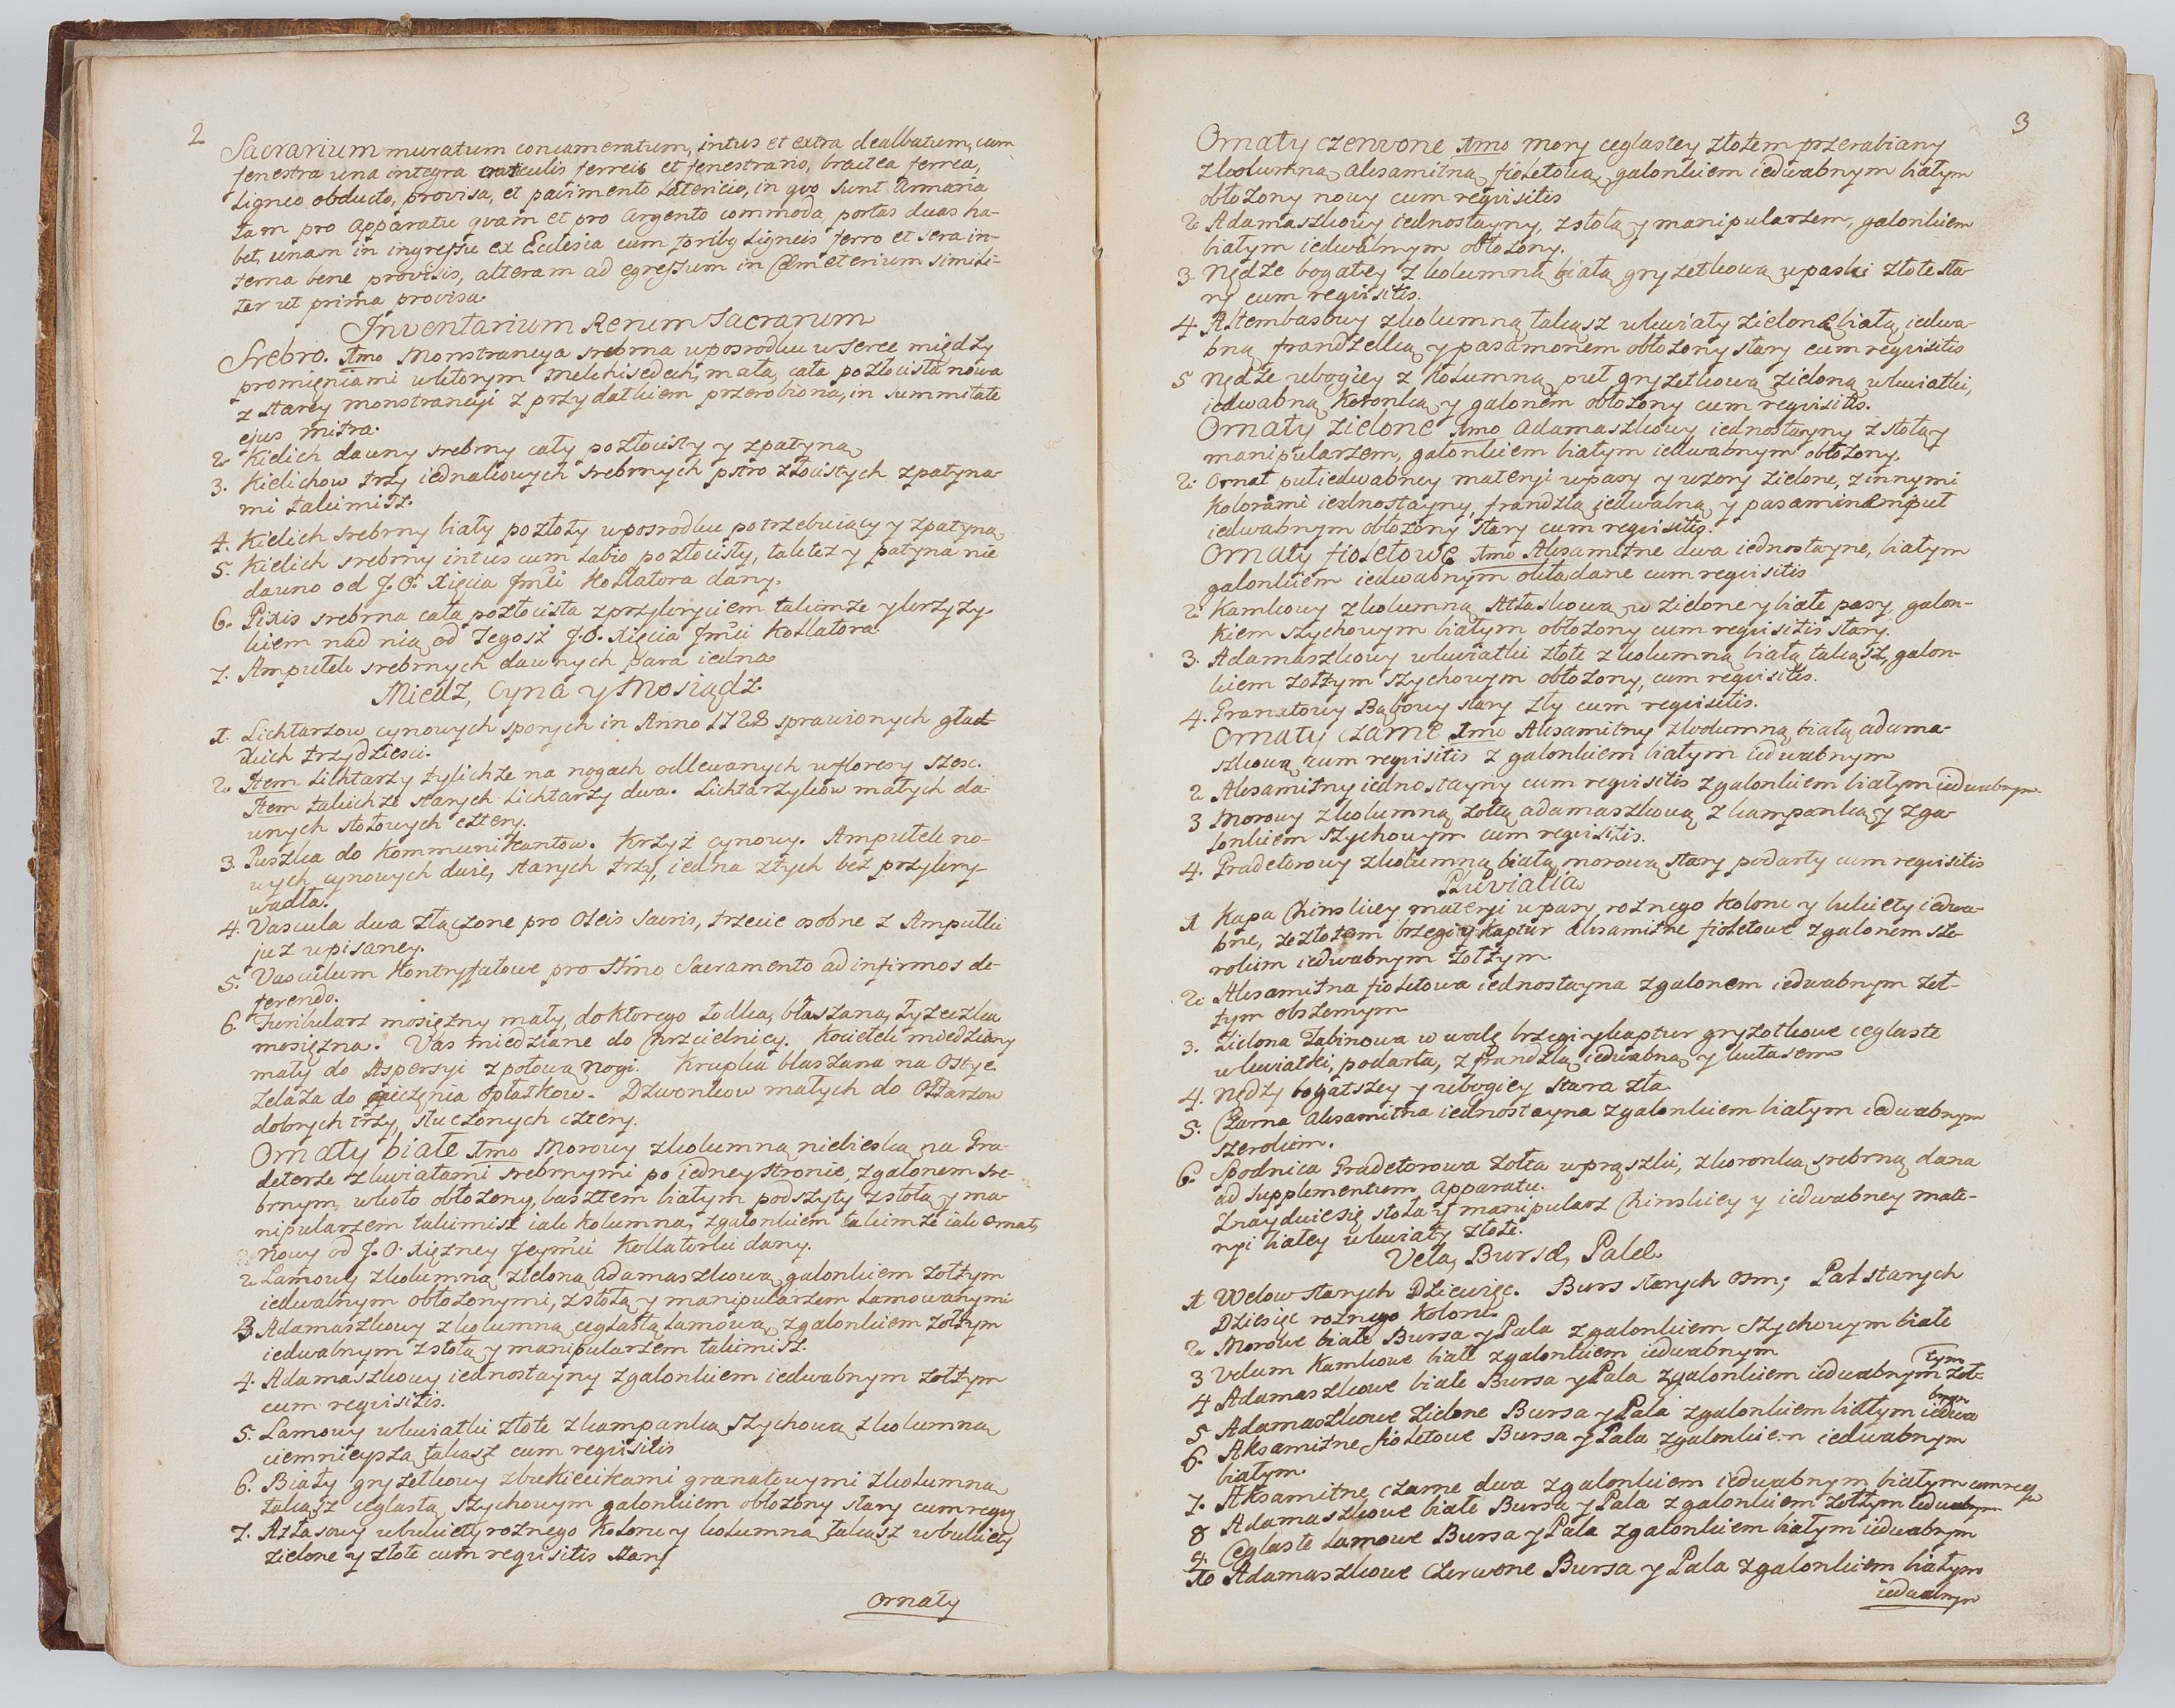 2
Sacrarium muratum concameratum, intus et extra dealbatum, cum
fenestra una integra craticulis ferreis et fenestrario, bractea ferrea,
ligneo obducto, provisa, et pavimento latericio, in quo sunt Armaria
tam pro Apparatu quam et pro Argento commoda, portas duas ha-
bet, unam in ingressu ex Ecclesia cum foribq ligneis ferro et sera in-
terna bene provisis, alteram ad egressum in Cœmeterium simili-
ter ut prima provisa.
Inventarium Rerum Sacrarum
Srebro. 1mo Monstrancya srebrna w posrodku w serce między
promięniami w ktorym Melchisedech, mała, cała pozłocista nowa
z starey monstrancyi z przydatkiem przerobiona, in summitate
ejus mitra.
2. Kielich dawny srebrny cały pozłocisty y z patyną
3. Kielichow trzy iednakowych srebrnych pstro złocistych z patyna-
mi takimisz.
4. Kielich srebrny biały pozłoty w posrodku potrzebuiący y z patyną
5. Kielich srebrny intus cum labio pozłocisty, taktez y patyna nie
dawno od J. O. Xięcia Jmci Kollatora dany.
6. Pixis srebrna cała pozłocista z przykryciem takimze y krzyzy-
kiem nad nią od Tegosz J. O. Xięcia Jmci Kollatora.
7. Ampułek srebrnych dawnych para iedna
Miedz, Cyna y Mosiądz.
1. Lichtarzow cynowych sporych in Anno 1728 sprawionych gład-
kich trzydziesci.
2. Item Lichtarzy tylichze na nogach odlewanych w floresy szesc.
Item takichze starych Lichtarzy dwa. Lichtarzykow małych da-
wnych stołowych cztery.
3. Puszka do Kommunikantow. Krzyż cynowy. Ampułek no-
wych cynowych dwie, starych trzy, iedna złych bez przykry-
wadła.
4. Vascula dwa złączone pro Oleis Sacris, trzecie osobne z Ampułki
juz wpisaney.
5. Vasculum Kontryfałowe pro SSmo Sacramento ad infirmos de-
ferendo.
6. Turibularz mosiężny mały, do ktorego łodka blaszana, łyzeczka
mosięzna. Vas miedziane do Chrzcielnicy. Kociełek miedziany
mały do Aspersyi z połową nogi. Krupka blaszana na Ostye
Zelaza do pieczęnia Opłatkow. Dzwonkow małych do Ołtarzow
dobrych trzy, stłuczonych cztery.
Ornaty białe 1mo Morowy z kolumną niebieską na Gra-
deterze z kwiatami srebrnymi po iedney stronie, z galonem sre-
brnym w koło obłozony, basztem białym podszyty z stołą y ma-
nipularzem takimisz iak kolumna, z galonkiem takimze iak Ornat,
nowy od J. O. Xięzney Jeymci Kollatorki dany.
2. Lamowy z kolumną zieloną Adamaszkową galonkiem zołtym
iedwabnym obłozonymi, z stołą y manipularzem Lamowanymi
3. Adamaszkowy z kolumną ceglastą Lamową, z galonkiem zołtym
iedwabnym z stołą y manipularzem takimisz.
4. Adamaszkowy iednostayny z galonkiem iedwabnym zołtym
cum reqvisitis.
5. Lamowy w kwiatki złote z kampanką szychową z kolumną
ciemnieyszą takasz cum reqvisitis
6. Biały gryzetkowy z bukiecikami granatowymi z kolumną
takasz ceglastą, szychowym galonkiem obłozony stary cum reqvis
7. Atłasowy w bukiety roznego Koloru y kolumną takasz w bukiety
zielone y złote cum reqvisitis stary
Ornaty
3
Ornaty czerwone 1mo mory ceglastey złotem przerabiany
z kolumną Aksamitną fioletową galonkiem iedwabnym białym
obłozony nowy cum reqvisitis
2. Adamaszkowy iednostayny, z stołą y manipularzem, galonkiem
białym iedwabnym obłozony.
3. Nędze bogatey z kolumną białą gryzetkową w paski złote sta-
ry cum reqvisitis.
4. Altembasowy z kolumną takasz w kwiaty zielone białą iedwa-
bną frandzelką y pasamonem obłozony stary cum reqvisitis
5 Nędze ubogiey z Kolumną puł gryzetkową zieloną w kwiatki,
iedwabną Koronką y galonem obłozony cum reqvisitis.
Ornaty zielone 1mo Adamaszkowy iednostayny z stołą y
manipularzem, galonkiem białym iedwabnym obłozony.
2. Ornat puł iedwabney materyi w pasy y wzory zielone, z innymi
Kolorami iednostayny, frandzlą iedwabną y pasaminem puł
iedwabnym obłozony stary cum reqvisitis.
Ornaty fioletowe 1mo Aksamitne dwa iednostayne, białym
galonkiem iedwabnym okładane cum reqvisitis
2. Kamkowy z kolumną Atłaskową w zielone y białe pasy, galon-
kiem szychowym białym obłozony cum reqvisitis stary.
3. Adamaszkowy w kwiatki złote z kolumną białą takasz, galon-
kiem zołtym szychowym obłozony, cum reqvisitis.
4. Granatowy Bąbowy stary zły cum reqvisitis.
Ornaty Czarne 1mo Aksamitny z kolumną białą adama-
szkową cum reqvisitis z galonkiem białym iedwabnym
2 Aksamitny iednostayny cum reqvisitis z galonkiem białym iedwabnym.
3 Morowy z kolumną zołtą adamaszkową z kampanką y z ga-
lonkiem szychowym cum reqvisitis.
4. Gradetorowy z kolumną białą morową stary podarty cum reqvisitis
Pluvialia
1 Kapa Chinskiey materyi w pasy roznego Koloru y bukiety iedwa-
bne, ze złotem brzegi y Kaptur Aksamitne fioletowe z galonem sze-
rokim iedwabnym zołtym.
2. Aksamitna fioletowa iednostayna z galonem iedwabnym zoł-
tym obszernym
3. Zielona Tabinowa w wodę brzegi y kaptur gryzotkowe ceglaste
w kwiatki, podarta, z frandzlą iedwabną y kutasem
4. Nędzy bogatszey y ubogiey stara zła.
5. Czarna Aksamitna iednostayna z galonkiem białym iedwabnym
szerokim.
6. Spodnica Gradetorowa zołta w prąszki, z koronką srebrną dana
ad supplementum Apparatu.
Znayduie się stoła y manipularz Chinskiey y iedwabney mate-
ryi białey w kwiaty złote.
Vela, Bursæ, Palæ
1 Welow starych Dziewięc. Burs starych osm; Pal starych
Dziesięc roznego Koloru
2 Morowe białe Bursa y Pala z galonkiem szychowym białe
3 Velum Kamkowe białe z galonkiem iedwabnym
4 Adamaszkowe białe Bursa y Pala z galonkiem iedwabnym zoł-
tym
5 Adamaszkowe Zielone Bursa y Pala z galonkiem białym iedwa
bnym
6. Aksamitne fioletowe Bursa y Pala z galonkiem iedwabnym
białym.
7. Aksamitne czarne dwa z galonkiem iedwabnym białym cum req
8 Adamaszkowe białe Bursa y Pala z galonkiem zołtym iedwabnym
9. Ceglaste Lamowe Bursa y Pala z galonkiem białym iedwabnym
10 Adamaszkowe czerwone Bursa y Pala z galonkiem białym
iedwabnym